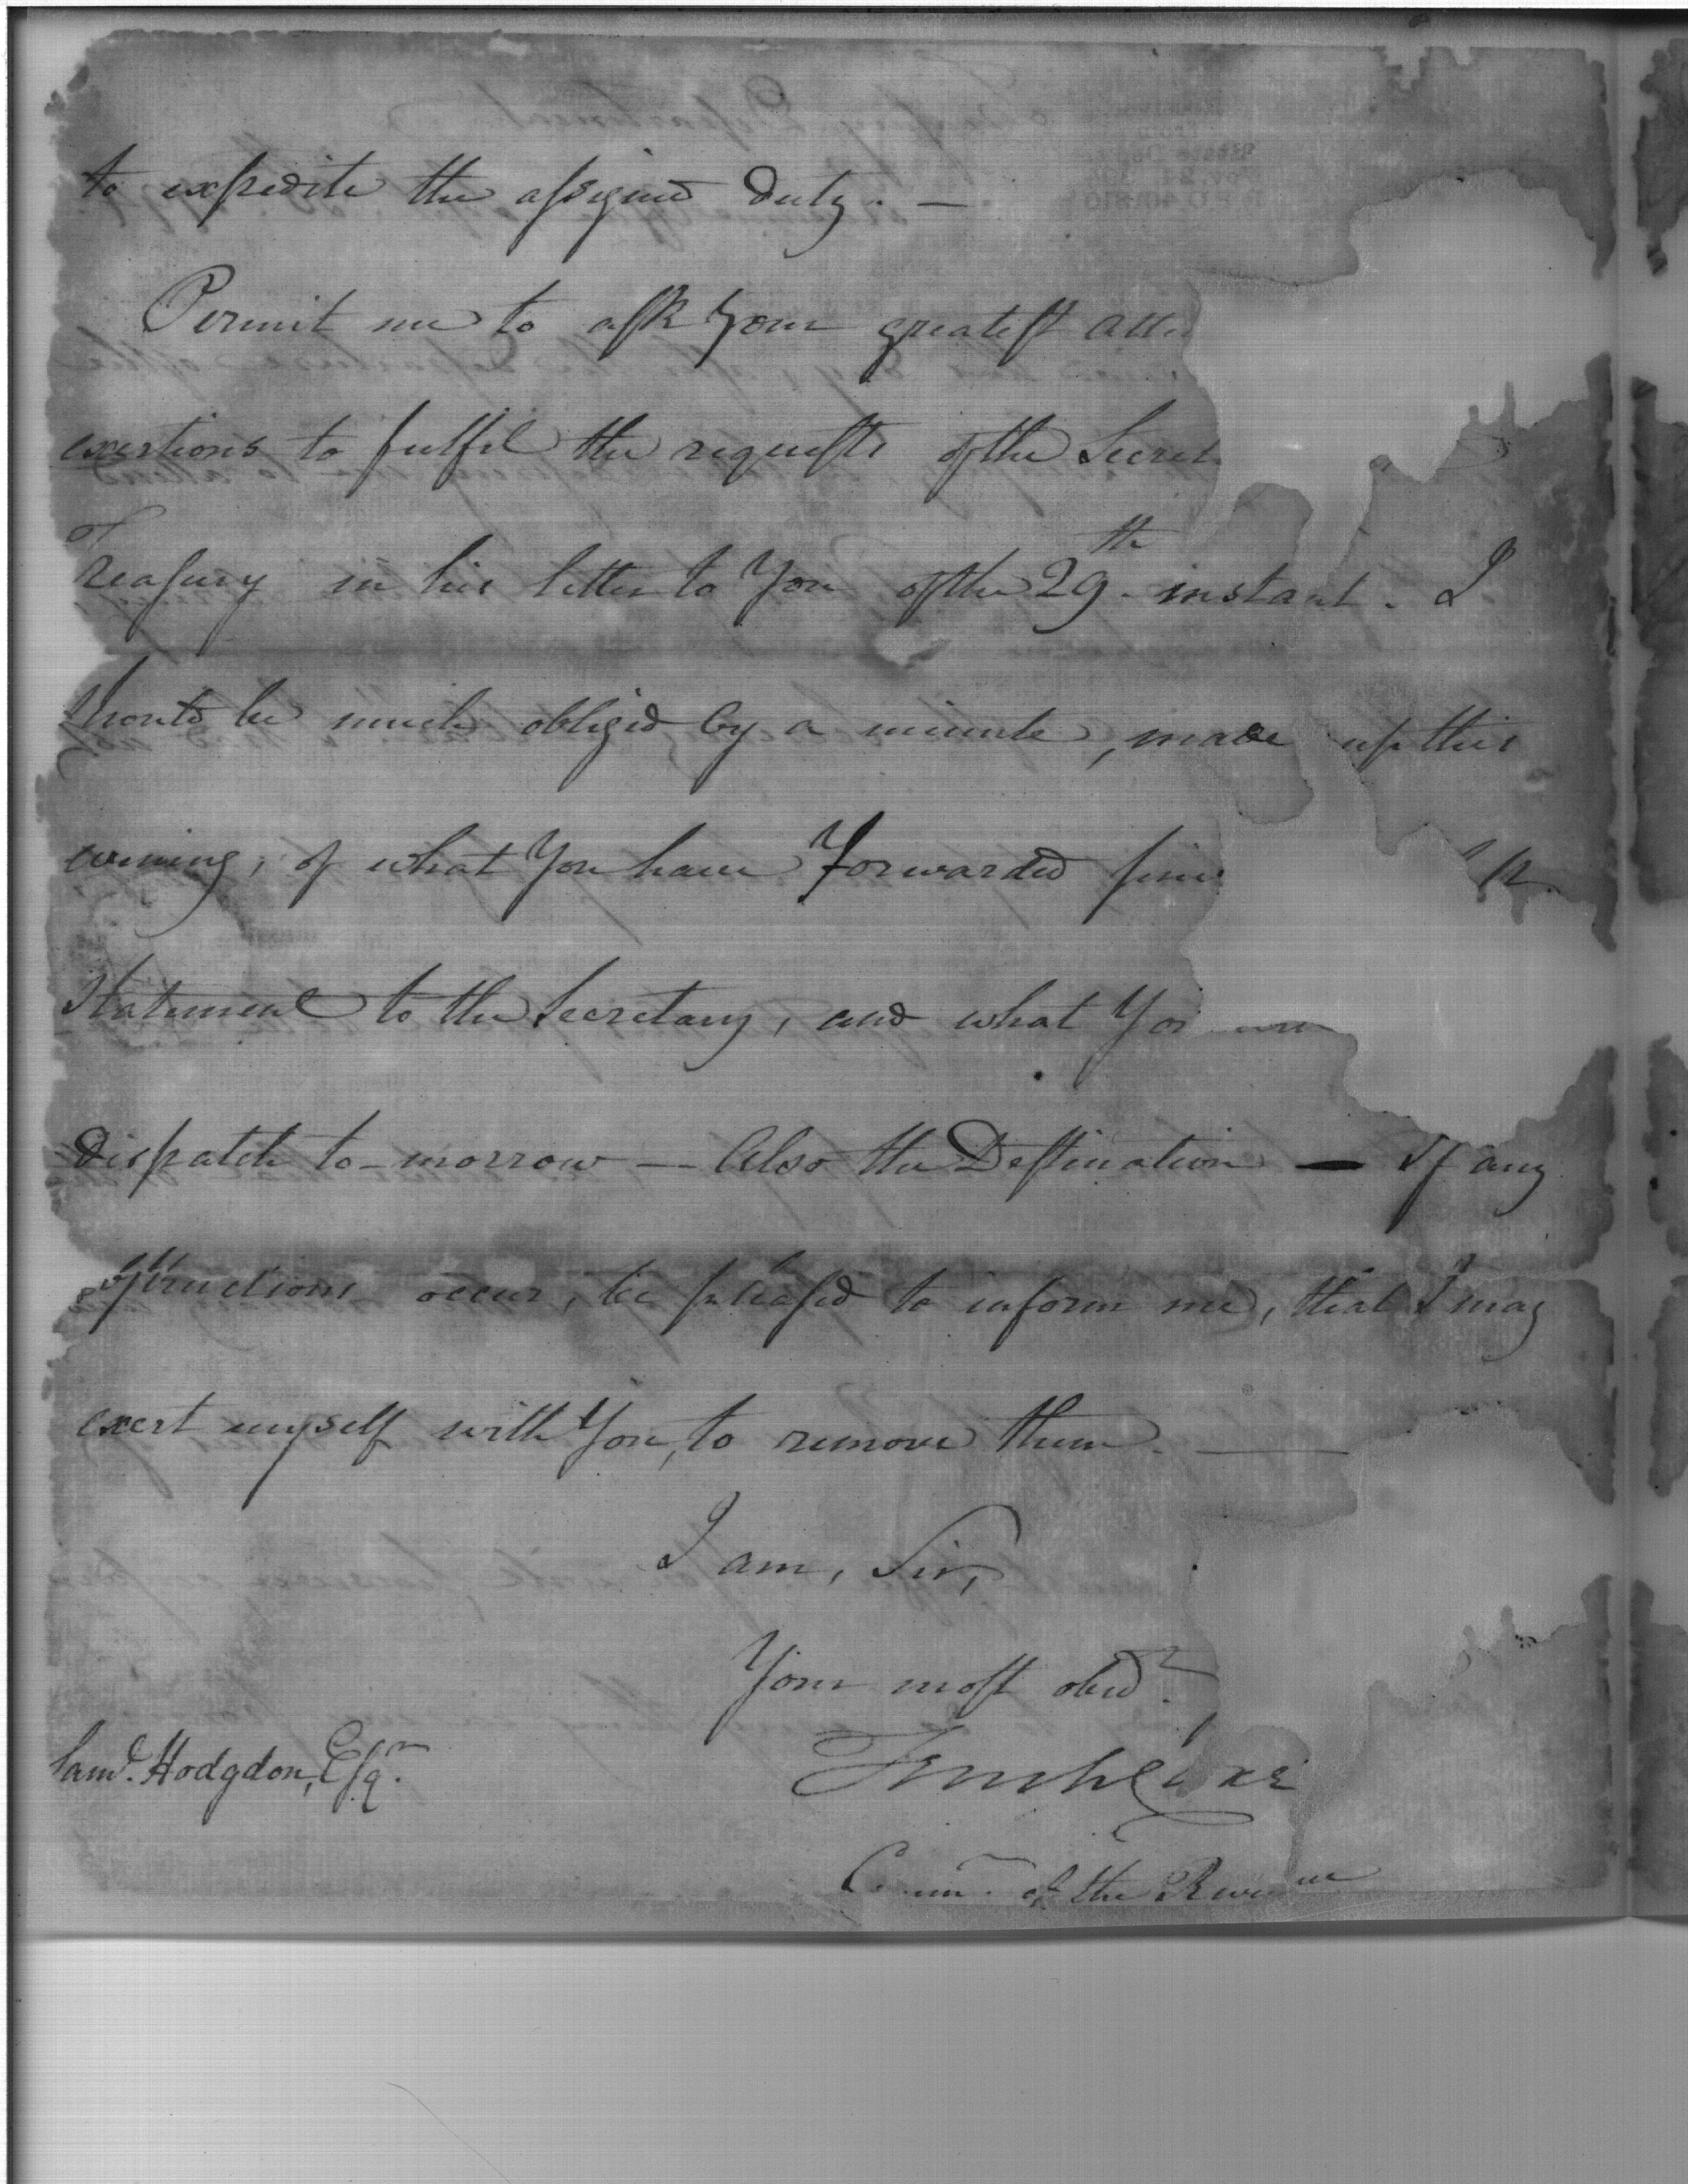 to expedite the assigned duty. —
Permit me to ask your greatest
exertions to fulfil the requests of the
Treasury in his letter to You of the 29th instant. I
should be much obliged by a minute, made up this
evening, of what You have forwarded
statement to the Secretary, and what You
dispatch to-morrow — Also the Destination — If any
obstructions occur, be pleased to inform me, that I may
exert myself with You, to remove them. —
I am, Sir,
Your most obedt.
Saml. Hodgdon, Esqr.
Tench Coxe
of the Revenue